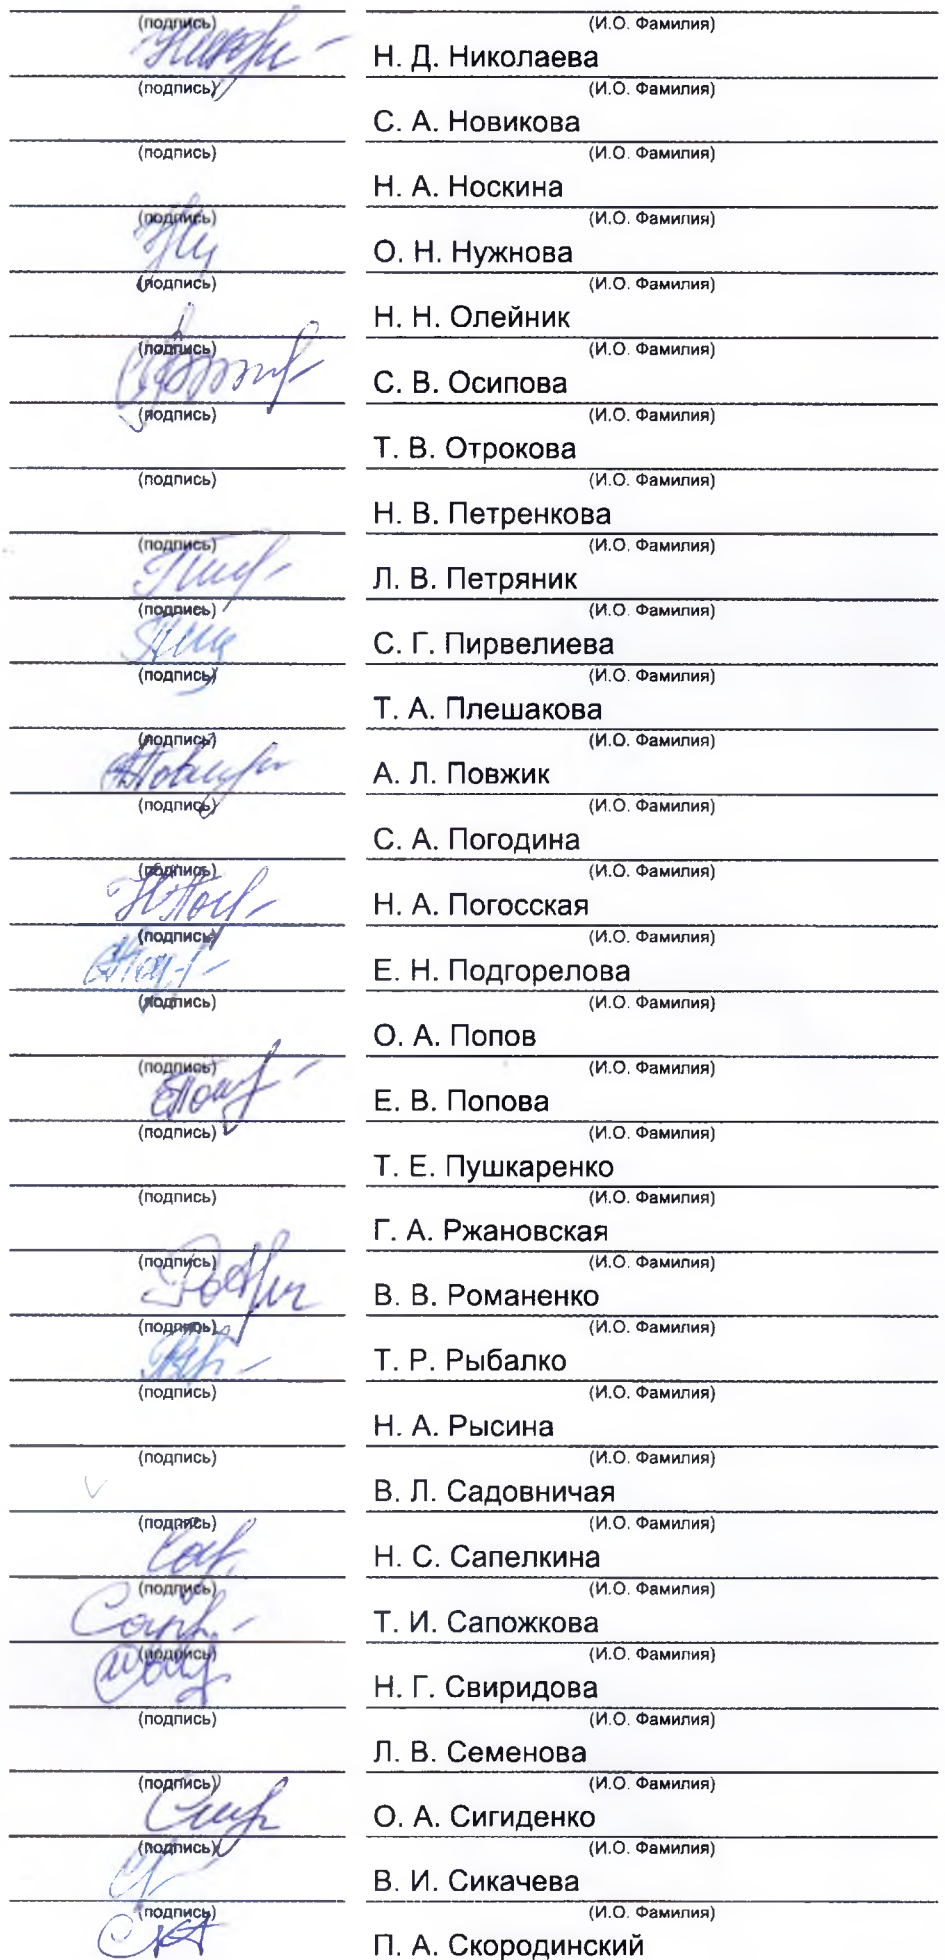 (подпись) (И.О. Фамилия)
Н. Д. Николаева
(подпись) (И.О. Фамилия)
С. А. Новикова
(подпись) (И.О. Фамилия)
Н. А. Носкина
(подпись) (И.О. Фамилия)
О. Н. Нужнова
(подпись) (И.О. Фамилия)
Н. Н. Олейник
(подпись) (И.О. Фамилия)
С. В. Осипова
(подпись) (И.О. Фамилия)
Т. В. Отрокова
(подпись) (И.О. Фамилия)
Н. В. Петренкова
(подпись) (И.О. Фамилия)
Л. В. Петряник
(подпись) (И.О. Фамилия)
С. Г. Пирвелиева
(подпись) (И.О. Фамилия)
Т. А. Плешакова
(подпись) (И.О. Фамилия)
А. Л. Повжик
(подпись) (И.О. Фамилия)
С. А. Погодина
(подпись) (И.О. Фамилия)
Н. А. Погосская
(подпись) (И.О. Фамилия)
Е. Н. Подгорелова
(подпись) (И.О. Фамилия)
О. А. Попов
(подпись) (И.О. Фамилия)
Е. В. Попова
(подпись) (И.О. Фамилия)
Т. Е. Пушкаренко
(подпись) (И.О. Фамилия)
Г. А. Ржановская
(подпись) (И.О. Фамилия)
В. В. Романенко
(подпись) (И.О. Фамилия)
Т. Р. Рыбалко
(подпись) (И.О. Фамилия)
Н. А. Рысина
(подпись) (И.О. Фамилия)
В. Л. Садовничая
(подпись) (И.О. Фамилия)
Н. С. Сапелкина
(подпись) (И.О. Фамилия)
Т. И. Сапожкова
(подпись) (И.О. Фамилия)
Н. Г. Свиридова
(подпись) (И.О. Фамилия)
Л. В. Семенова
(подпись) (И.О. Фамилия)
О. А. Сигиденко
(подпись) (И.О. Фамилия)
В. И. Сикачева
(подпись) (И.О. Фамилия)
П. А. Скородинский